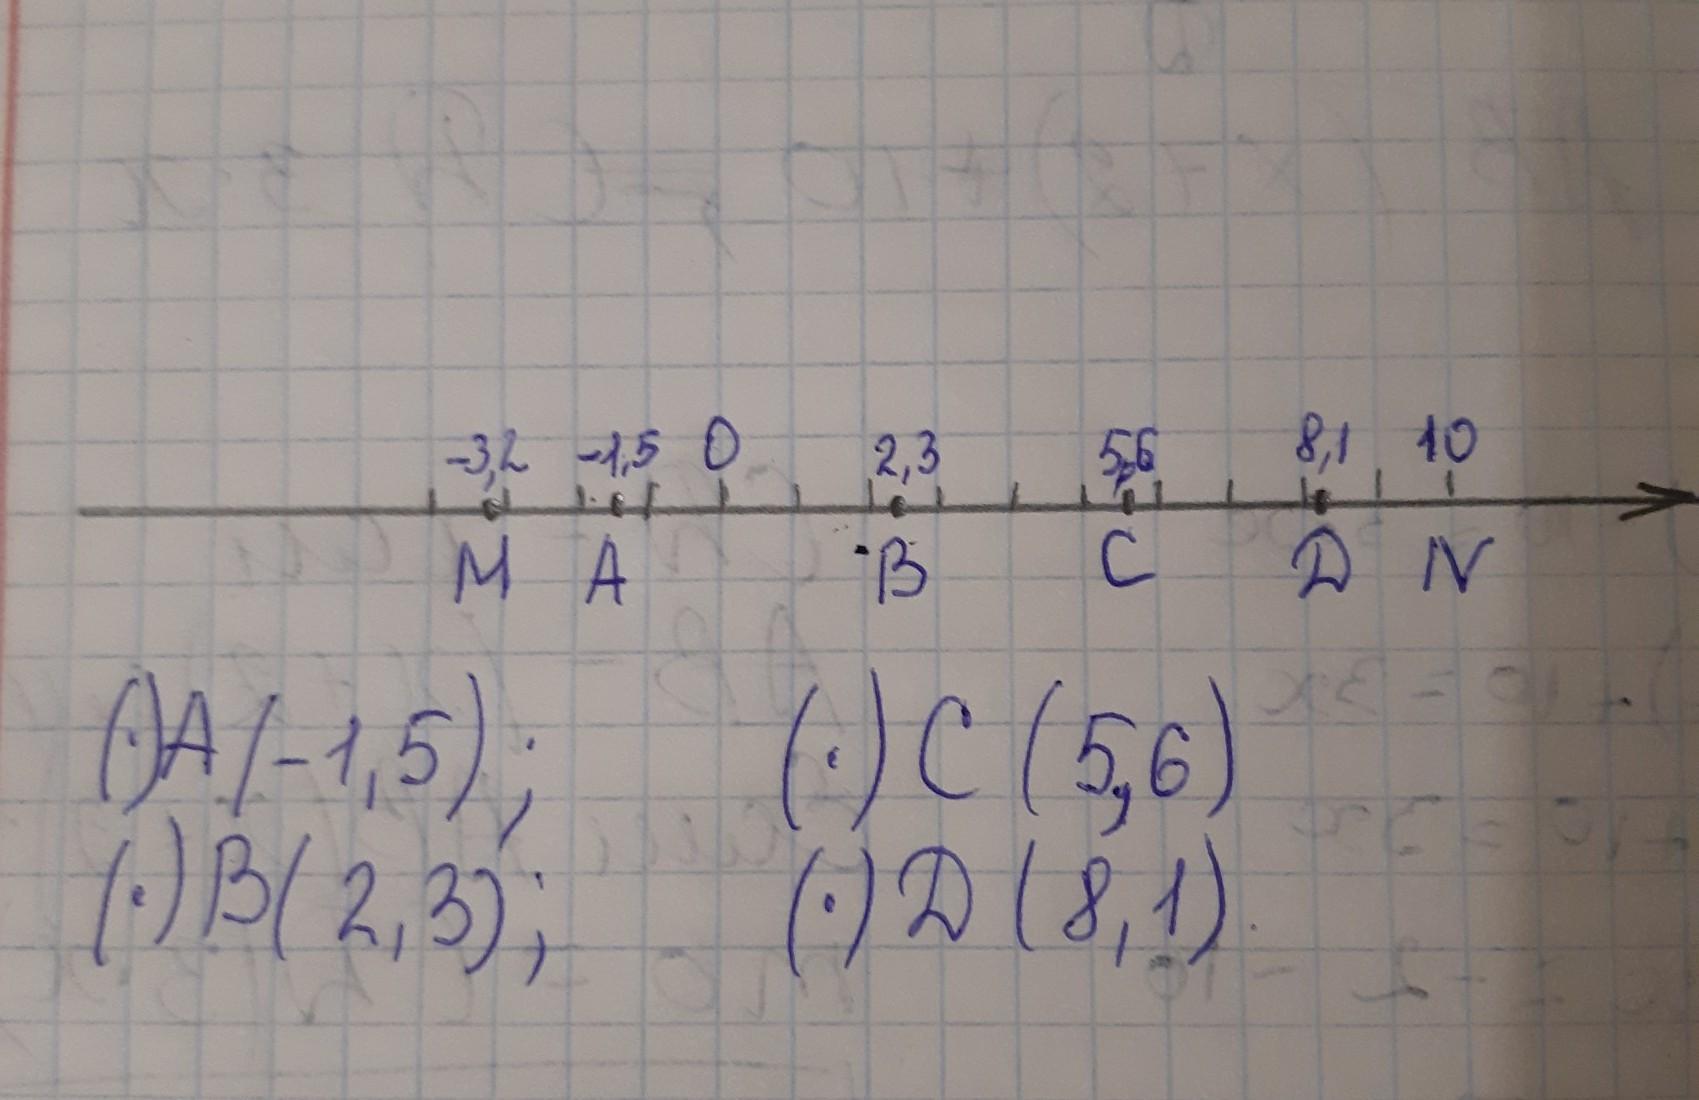 -3,2 -1,5 0 2,3 5,6 8,1 10
M A B C D N
(·)A(-1,5); (·) C (5,6)
(·) B( 2,3); (·) D (8,1).